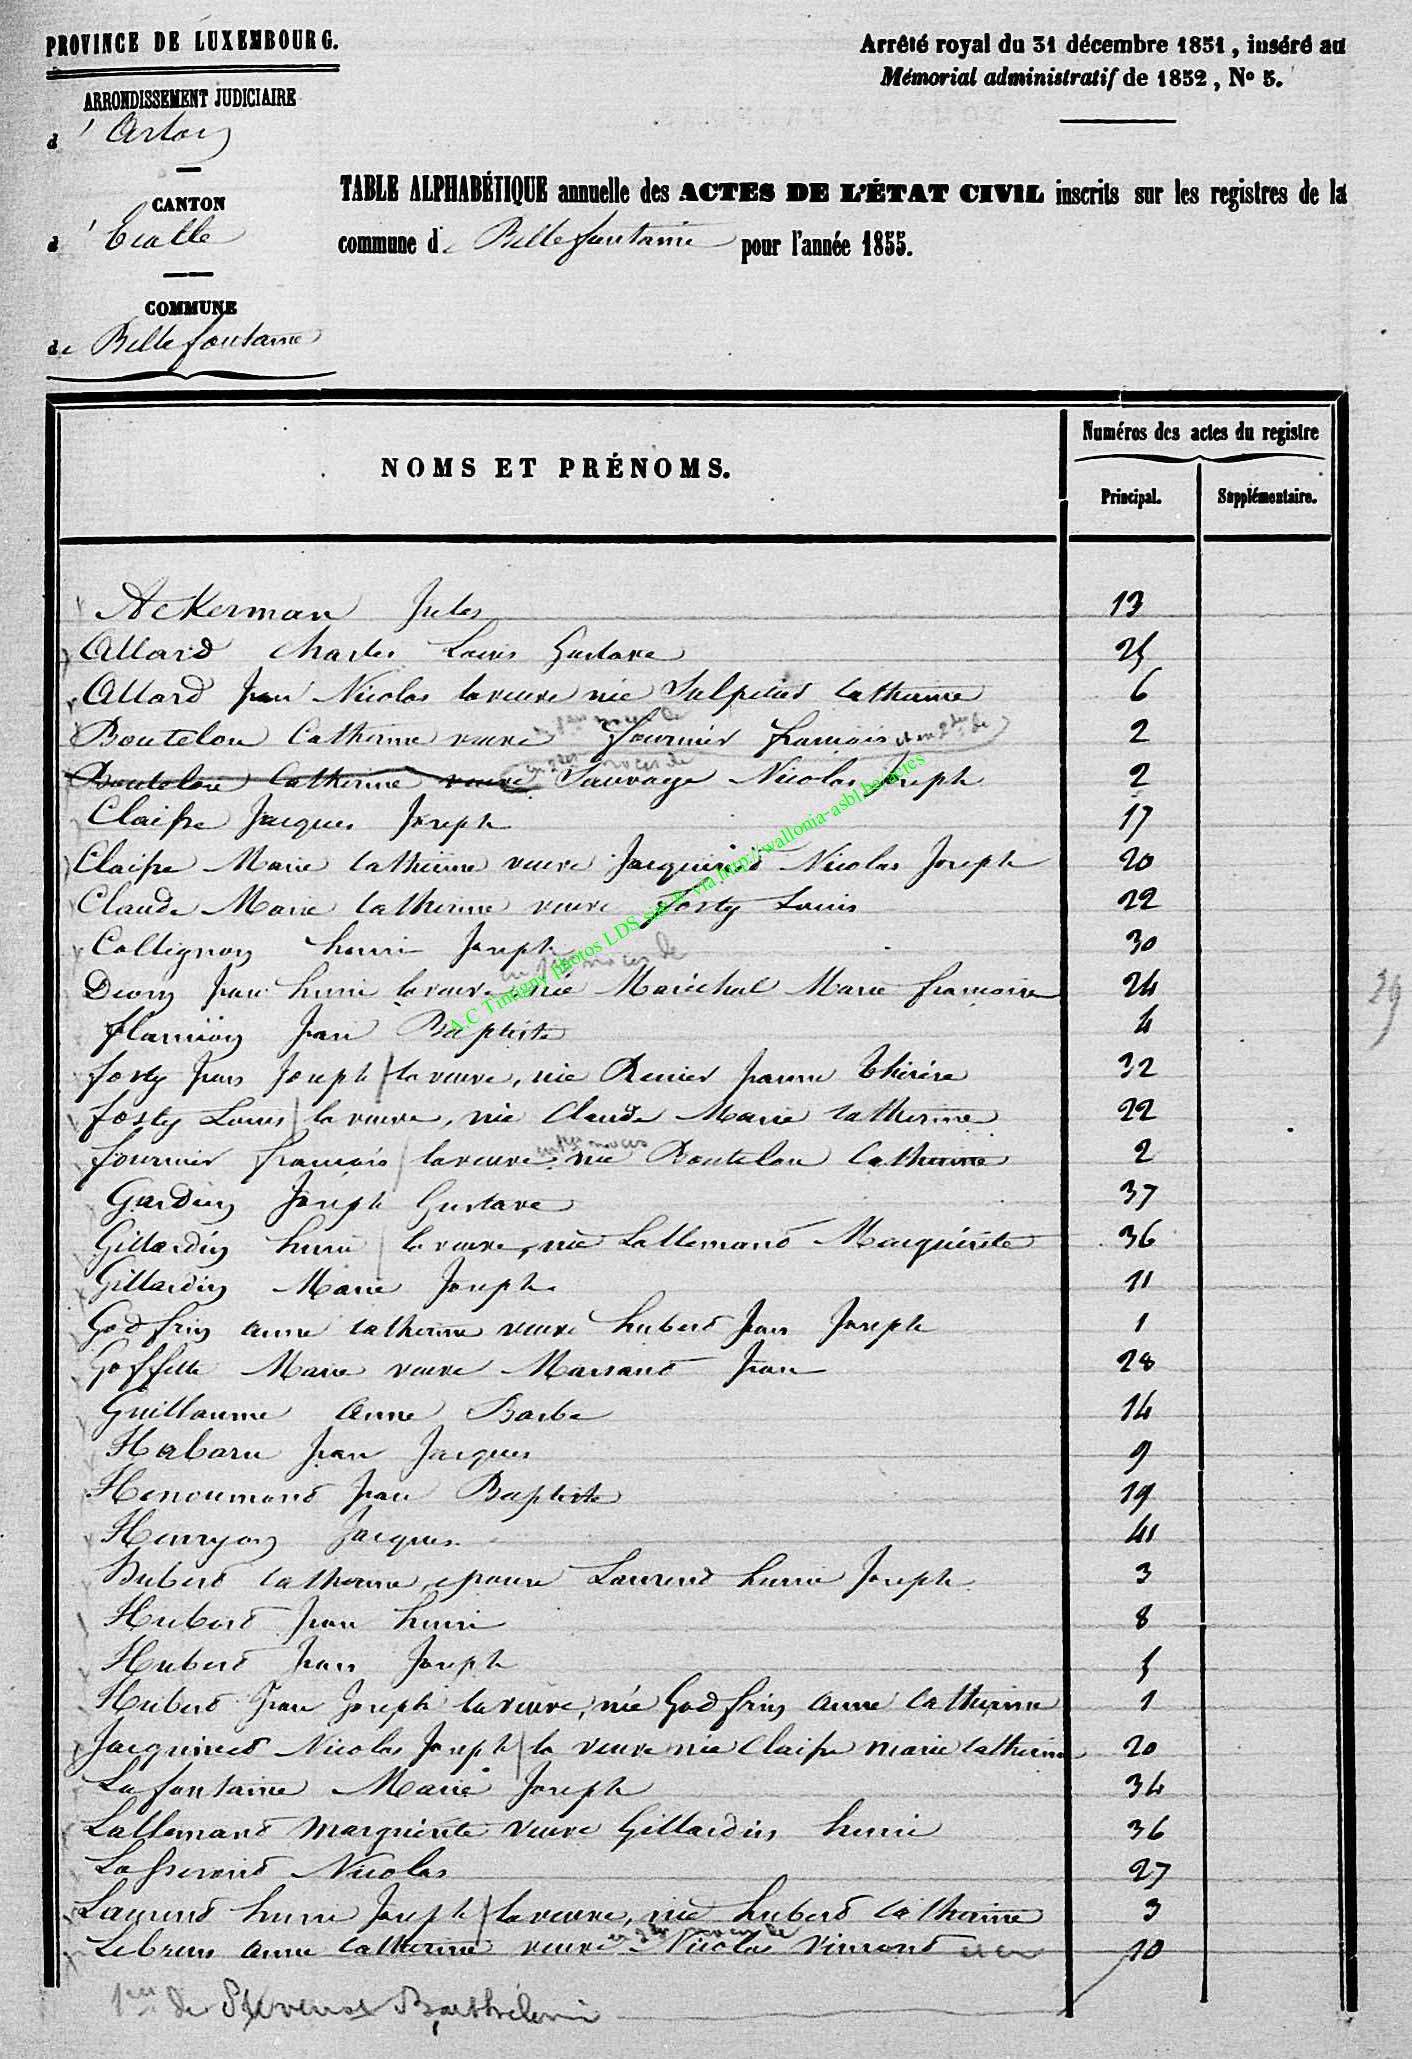 PROVINCE DE LUXEMBOURG.
ARRONDISSEMENT JUDICIAIRE
d'Arlon
CANTON
d'Etalle
COMMUNE
de Bellefontaine
Arrêté royal du 31 décembre 1851, inséré au
Mémorial administratif de 1852, No 5.
TABLE ALPHABÉTIQUE annuelle des ACTES DE L'ÉTAT CIVIL inscrits sur les registres de la
commune de Bellefontaine pour l'année 1855.
NOMS ET PRÉNOMS.
Numéros des actes du registre
Principal. Supplémentaire.
Ackerman Jules 13
Allard Charles Louis Gustave 25
Allard Jean Nicolas la veuve née Sulpices Catherine 6
Boutelou Catherine veuve en 1res noces de Fournier François et en 2des de 2
Boutelou Catherine veuve en 2des noces de Sauvage Nicolas Joseph 2
Claisse Jacques Joseph 17
Claisse Marie Catherine veuve Jacquined Nicolas Joseph 20
Claude Marie Catherine veuve Fosty Louis 22
Collignon henri Joseph 30
Dion Jean henri la veuve en 1res noces de née Maréchal Marie françoise 24
29
flamion Jean Baptiste 4
fosty Jean Joseph / la veuve, née Renier Jeanne Thérèse 32
fosty Louis / la veuve, née Claude Marie Catherine 22
fournier françois / la veuve en 1res noces née Boutelou Catherine 2
Gardien Joseph Gustave 37
Gillardin henri / la veuve, née Lallemand Marguerite 36
Gillardin Marie Joseph 11
Godfrin anne catherine veuve hubert Jean Joseph 1
Goffette Marie veuve Marsand Jean 28
Guillaume anne Barbe 14
Habaru Jean Jacques 9
Henoumond Jean Baptiste 19
Henryon Jacques 41
Hubert Catherine, epouse Laurend henri Joseph 3
Hubert Jean henri 8
Hubert Jean Joseph 5
Hubert Jean Joseph la veuve, née Godfrin anne Catherine 1
Jacquined Nicolas Joseph / la veuve née Claisse marie catherine 20
Lafontaine Marie Joseph 34
Lallemand marguerite veuve Gillardin henri 36
Nicolas 27
Laurend henri Joseph / la veuve, née hubert Catherine 3
Lebrun anne catherine veuve en 2des noces de Nicolas Vimond et en 10
1res de Barthélemi
A.C Tintigny photos LDS via http://wallonia-asbl.be/actes